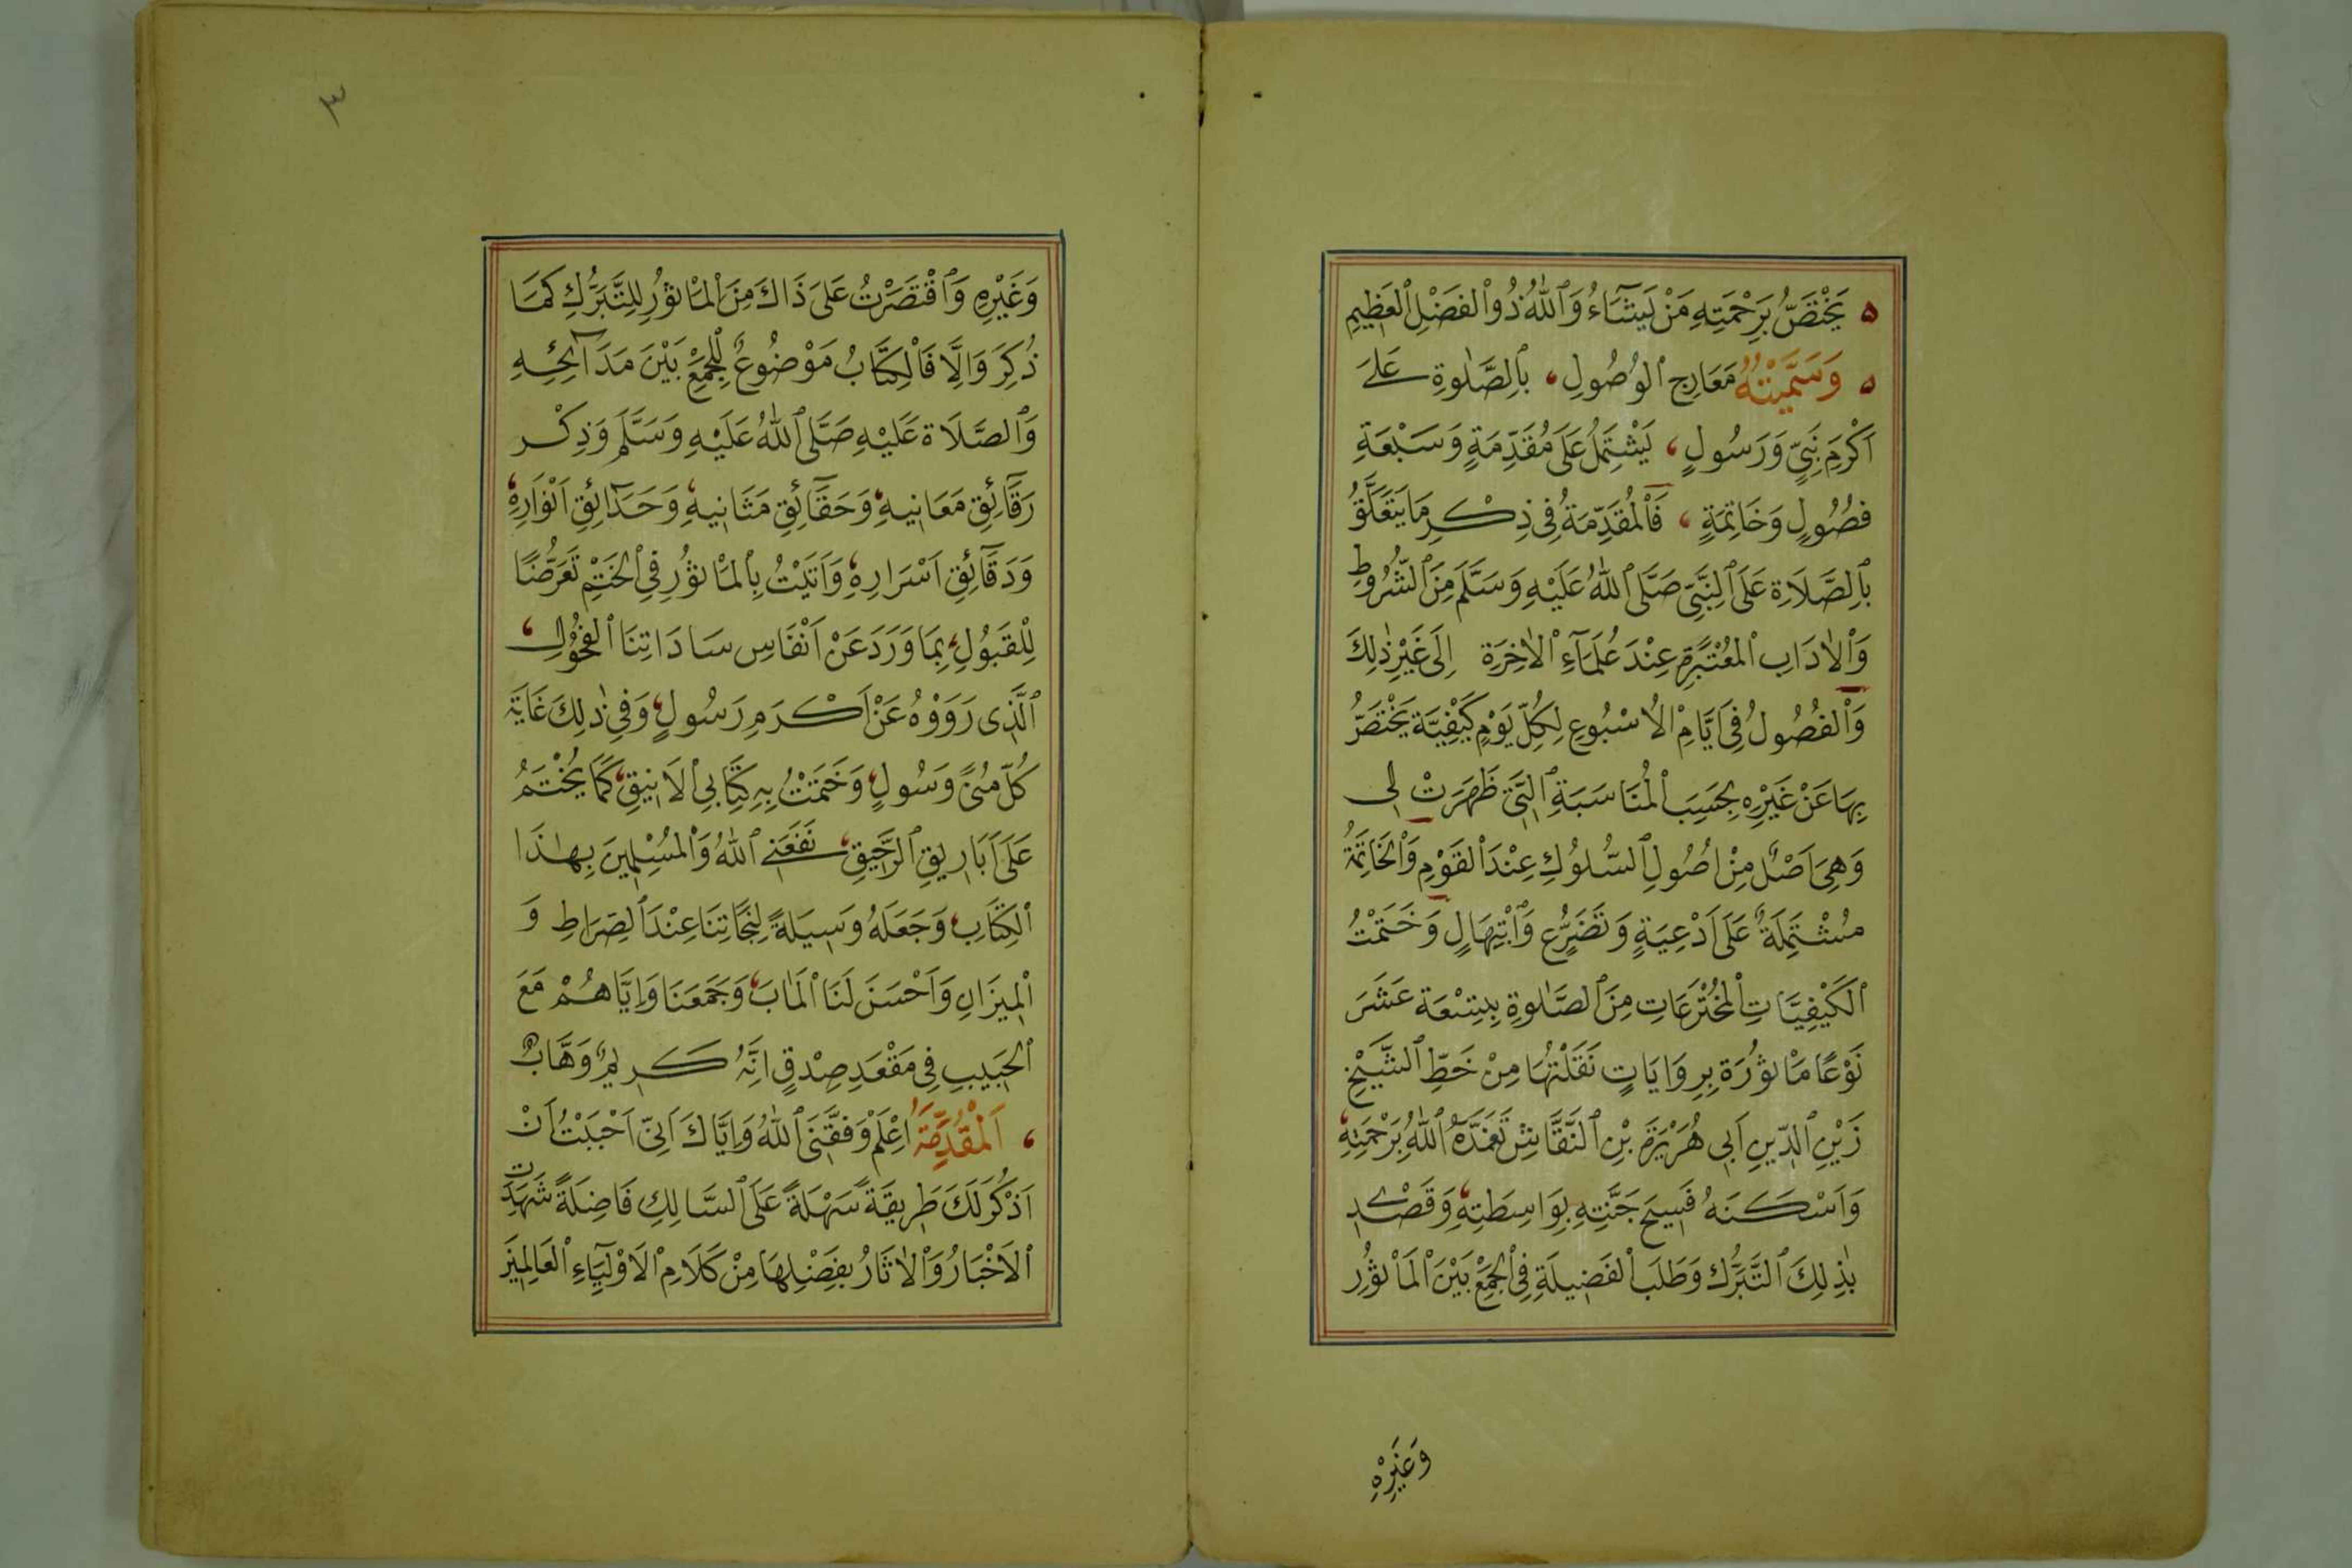 يَخْتَصُّ بِرَحْمَتِهِ مَنْ يَشَآءُ وَٱللّٰهُ ذُو ٱلْفَضْلِ ٱلْعَظِيمِ
وَسَمَّيْتُهُ مَعَارِجَ ٱلْوُصُولِ، بِٱلصَّلٰوةِ عَلَى
اَكْرَمِ نَبِيٍّ وَرَسُولٍ، يَشْتَمِلُ عَلَى مُقَدِّمَةٍ وَسَبْعَةِ
فُصُولٍ وَخَاتِمَةٍ، فَٱلْمُقَدِّمَةُ فِى ذِكْرِ مَا يَتَعَلَّقُ
بِٱلصَّلَاةِ عَلَى ٱلنَّبِيِّ صَلَّى ٱللّٰهُ عَلَيْهِ وَسَلَّمَ مِنَ ٱلشُّرُوطِ
وَٱلْاٰدَابِ ٱلْمُعْتَبَرَةِ عِنْدَ عُلَمَآءِ ٱلْاٰخِرَةِ اِلَى غَيْرِ ذٰلِكَ
وَٱلْفُصُولُ فِى اَيَّامِ ٱلْاُسْبُوعِ لِكُلِّ يَوْمٍ كَيْفِيَّة يَخْتَصُّ
بِهَا عَنْ غَيْرِهِ بِحَسَبِ ٱلْمُنَاسَبَةِ ٱلَّتِى ظَهَرَتْ لِى
وَهِىَ اَصْلٌ مِنْ اُصُولِ ٱلسُّلُوكِ عِنْدَ ٱلْقَوْمِ وَٱلْخَاتِمَةُ
مُشْتَمِلَةٌ عَلَى اَدْعِيَةٍ وَتَضَرُّعٍ وَٱبْتِهَالٍ وَخَتَمْتُ
ٱلْكَيْفِيَّاتِ ٱلْمُخْتَرَعَاتِ مِنَ ٱلصَّلٰوةِ بِتِسْعَة عَشَرَ
نَوْعًا مَاْثُورَة بِرِوَايَاتٍ نَقَلْتُهَا مِنْ خَطِّ ٱلشَّيْخِ
زَيْنِ ٱلدِّينِ اَبِى هُرَيْرَةَ بْنِ ٱلنَّقَّاشِ تَغَمَّدَهُ ٱللّٰهُ بِرَحْمَتِهِ،
وَاَسْكَنَهُ فَسِيحَ جَنَّتِهِ بِوَاسِطَتِهِ، وَقَصْدِى
بِذٰلِكَ ٱلتَّبَرُّكَ وَطَلَبَ ٱلْفَضِيلَةِ فِى ٱلْجَمْعِ بَيْنَ ٱلْمَاْثُورِ
وَغَيْرِهِ
٣
وَغَيْرِهِ وَٱقْتَصَرْتُ عَلَى ذَاكَ مِنَ ٱلْمَاْثُورِ لِلتَّبَرُّكِ كَمَا
ذُكِرَ وَاِلَّا فَٱلْكِتَابُ مَوْضُوعٌ لِلْجَمْعِ بَيْنَ مَدَآئِحِهِ
وَٱلصَّلَاة عَلَيْهِ صَلَّى ٱللّٰهُ عَلَيْهِ وَسَلَّمَ وَذِكْرِ
رَقَآئِقِ مَعَانِيهِ، وَحَقَآئِقِ مَثَانِيهِ، وَحَدَآئِقِ اَنْوَارِهِ،
وَدَقَآئِقِ اَسْرَارِهِ، وَاَتَيْتُ بِٱلْمَاْثُورِ فِى ٱلْخَتْمِ تَعَرُّضًا
لِلْقَبُولِ، بِمَا وَرَدَ عَنْ اَنْفَاسِ سَادَاتِنَا ٱلْفُحُولِ،
ٱلَّذِى رَوَوْهُ عَنْ اَكْرَمِ رَسُولٍ، وَفِى ذٰلِكَ غَايَةُ
كُلِّ مُنًى وَسُولٍ، وَخَتَمْتُ بِهِ كِتَابِى ٱلْاَنِيقِ، كَمَا يُخْتَمُ
عَلَى اَبَارِيقِ ٱلرَّحِيقِ، نَفَعَنِى ٱللّٰهُ وَٱلْمُسْلِمِينَ بِهٰذَا
ٱلْكِتَابِ، وَجَعَلَهُ وَسِيلَةً لِنَجَاتِنَا عِنْدَ ٱلصِّرَاطِ وَ
ٱلْمِيزَانِ وَاَحْسَنَ لَنَا ٱلْمَاٰبَ، وَجَمَعَنَا وَاِيَّاهُمْ مَعَ
ٱلْحَبِيبِ فِى مَقْعَدِ صِدْقٍ اِنَّهُ كَرِيمٌ وَهَّابٌ
، اَلْمُقَدِّمَةُ اِعْلَمْ وَفَّقَنِى ٱللّٰهُ وَاِيَّاكَ اَنِّى اَحْبَبْتُ اَنْ
اَذْكُرَ لَكَ طَرِيقَةً سَهْلَةً عَلَى ٱلسَّالِكِ فَاضِلَةً شَهِدَتِ
ٱلْاَخْبَارُ وَٱلْاٰثَارُ بِفَضْلِهَا مِنْ كَلَامِ ٱلْاَوْلِيَآءِ ٱلْعَالِمِينَ